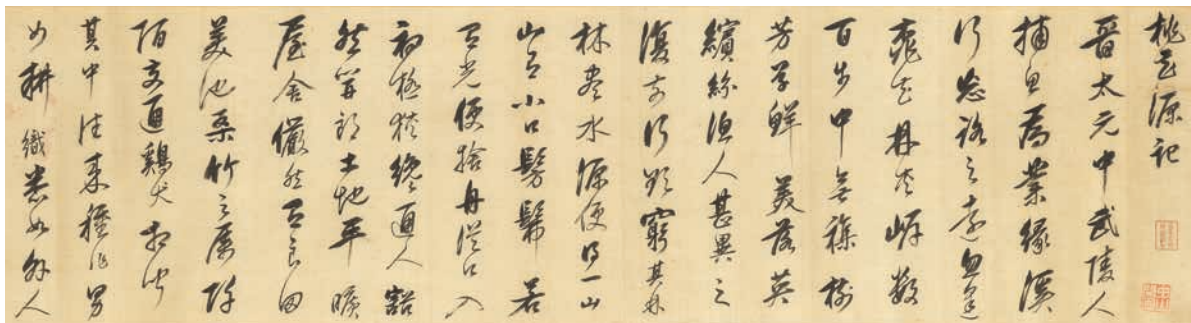 桃花源记
晋太元中武陵人
捕鱼為業緣溪
行忘路之遠忽逢
桃花林夾岸数
百步中無雜樹
芳草鮮美落英
繽紛漁人甚異之
復前行欲窮其林
林盡水源便得一山
山有小口髣髴若
有光便捨舟從口入
初極狹纔通人豁
然開朗土地平曠
屋舍儼然有良田
美池桑竹之屬阡
陌交通鷄犬相聞
其中往来種作男
女耕織悉如外人